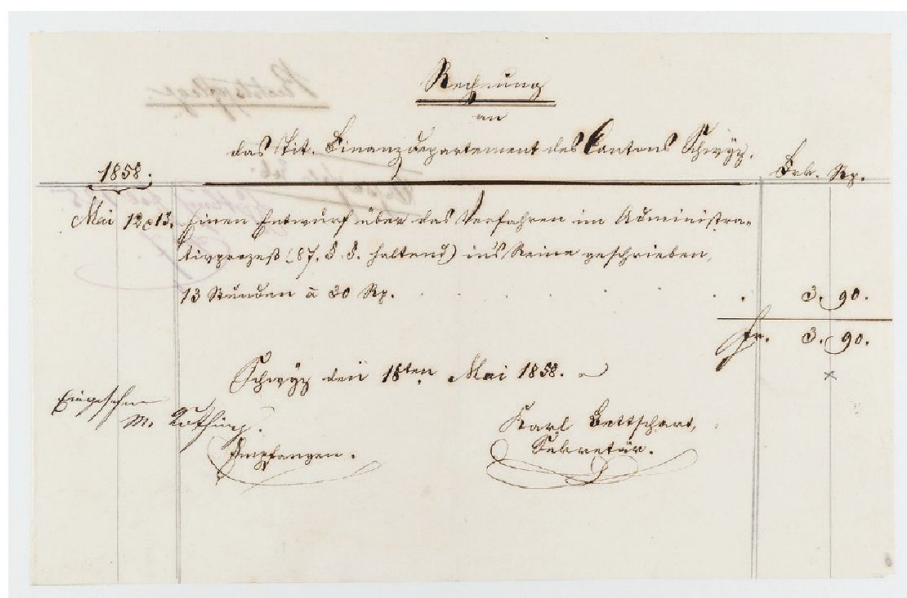 Rechnung
an
das Tit. Finanzdepartement des Cantons Schwÿz.
1858.
Frk. Rp.
Mai 12 & 13. Einen Entwurf über das Verfahren im Administra-
tivprozeß (87. §. §. haltend) in's Reine geschrieben,
13 Stunden à 30 Rp. . . . . . . 3. 90.
Fr. 3. 90.
Schwÿz den 18ten Mai 1858.
Eingesehen
M.
Karl Bettschart,
Empfangen.
Sekretär.